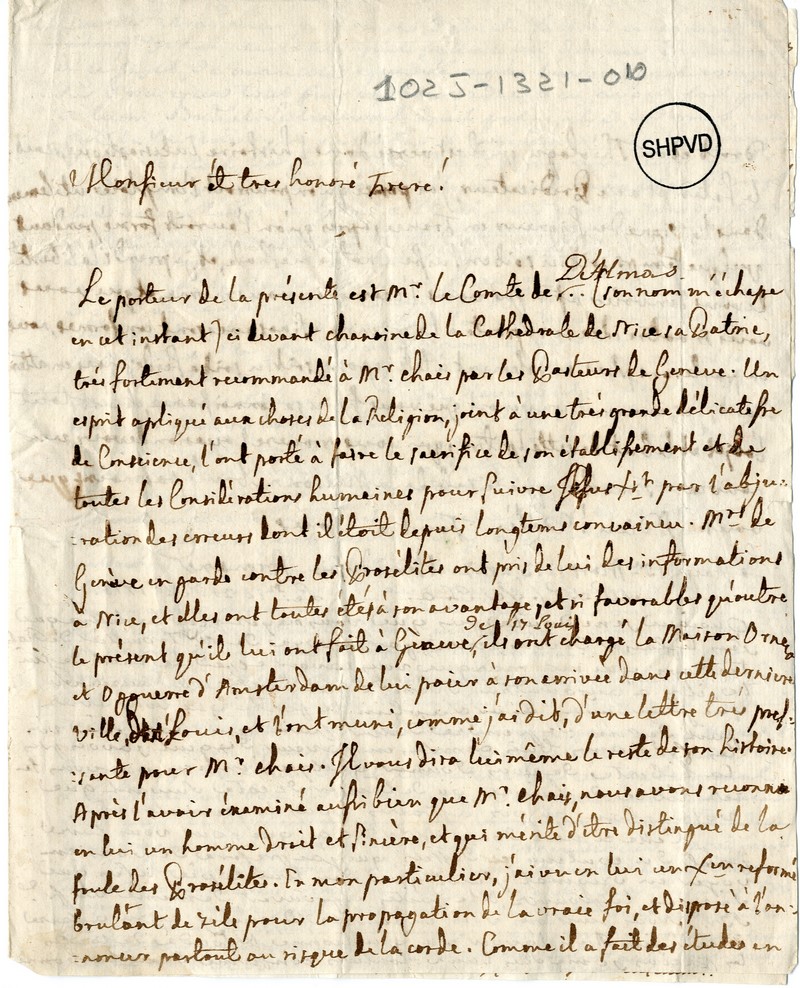 102 J-1321-010
SHPVD
Monsieur et tres honoré Frere!
D'Almas.
Le porteur de la présente est Mr. le Comte de ... (son nom m'échape
en cet instant) ci devant chanoine de la Cathédrale de Nice sa Patrie,
trés fortement recommandé à Mr. chais par les Pasteurs de Geneve. Un
esprit apliqué aux choses de la Religion, joint à une trés grande délicatesse
de Conscience, l'ont porté à faire le sacrifice de son établissement et de
toutes les Considérations humaines pour suivre Jésus Xt par l'abju-
:ration des erreurs dont il étoit depuis longtems convaincu. Mrs de
Genève en garde contre les Prosélites ont pris de lui des informations
à Nice, et elles ont toutes étés à son avantage, et si favorables qu'outre
de 17 Louis
le présent qu'ils lui ont fait à Genève, ils ont chargé la Maison Orne
et d'Amsterdam de lui paier à son arrivée dans cette derniere
ville, Louis, et l'ont muni, comme j'ai dit, d'une lettre trés pres-
:sante pour Mr. chais. Il vous dira lui même le reste de son histoire.
Après l'avoir éxaminé aussi bien que Mr. chais, nous avons reconnu
en lui un homme droit et sincère, et qui mérite d'être distingué de la
foule des Prosélites. En mon particulier, j'ai vu en lui un Xen reformé
brulant de zèle pour la propagation de la vraie foi, et disposé à l'an-
:noncer partout au risque de la corde. Comme il a fait des études en